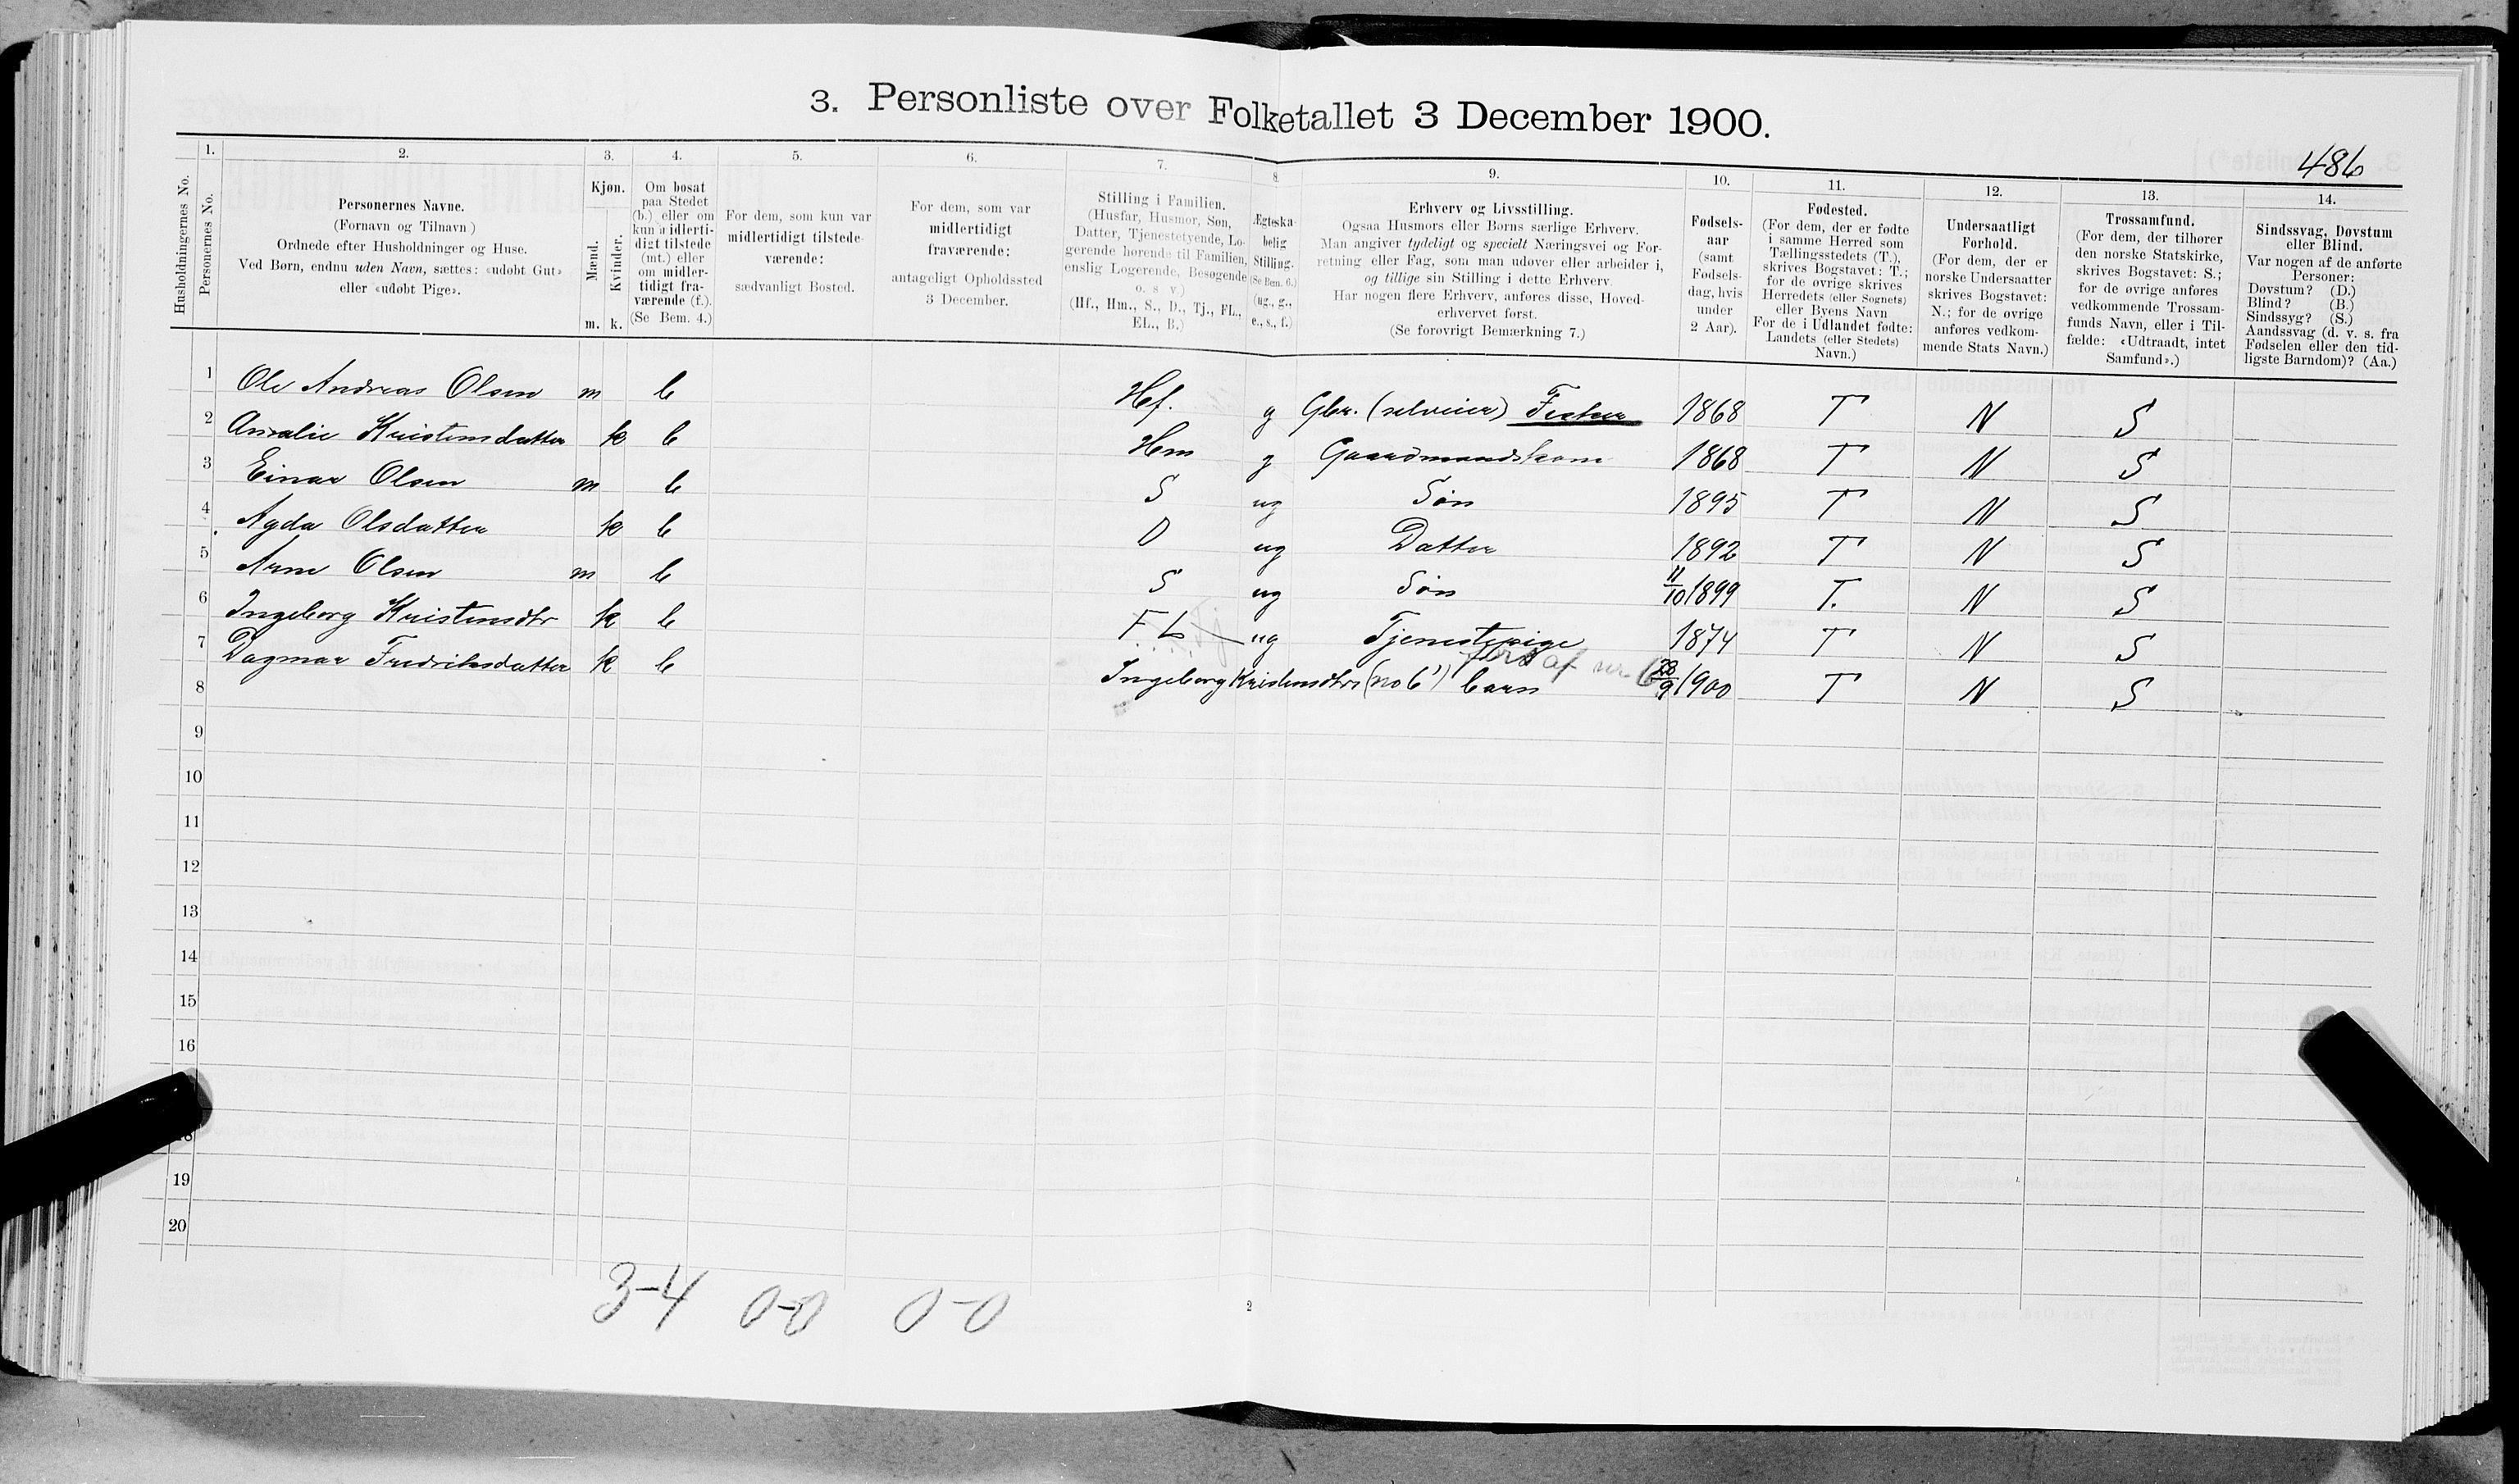 3. Personliste over Folketallet 3 December 1900.
486
Husholdningernes No.
1.
Personernes No.
2.
Personernes Navne.
(Fornavn og Tilnavn)
Ordnede efter Husholdninger og Huse.
Ved Børn, endnu uden Navn, sættes: «udøbt Gut»
eller «udøbt Pige».
3.
Kjøn.
Mænd.
Kvinder.
m. k.
4.
Om bosat
paa Stedet
(b.) eller om
kun midlerti-
digt tilstede
(mt.) eller
om midler-
tidigt fra-
værende (f.).
(Se Bem. 4.)
5.
For dem, som kun var
midlertidigt tilstede-
værende:
sædvanligt Bosted.
6.
For dem, som var
midlertidigt
fraværende:
antageligt Opholdssted
3 December.
7.
Stilling i Familien.
(Husfar, Husmor, Søn,
Datter, Tjenestetyende, Lo-
gerende hørende til Familien,
enslig Logerende, Besøgende
o. s v)
(Hf., Hm., S., D., Tj., FL.,
EL., B.)
8.
Ægteska-
belig
Stilling.
(Se Bem. 6.)
(ug., g.,
e., s., f.)
9.
Erhverv og Livsstilling.
Ogsaa Husmors eller Børns særlige Erhverv.
Man angiver tydeligt og specielt Næringsvei og For-
retning eller Fag, som man udøver eller arbeider i,
og tillige sin Stilling i dette Erhverv.
Har nogen flere Erhverv, anføres disse, Hoved-
erhvervet først.
(Se forøvrigt Bemærkning 7.)
10.
Fødsels-
aar
(samt
Fødsels-
dag, hvis
under
2 Aar).
11.
Fødested.
(For dem, der er fødte
i samme Herred som
Tællingsstedets (T.),
skrives Bogstavet: T.;
for de øvrige skrives
Herredets (eller Sognets)
eller Byens Navn
For de i Udlandet fødte:
Landets (eller Stedets)
Navn.)
12.
Undersaatligt
Forhold.
(For dem, der er
norske Undersaatter
skrives Bogstavet:
N.; for de øvrige
anføres vedkom-
mende Stats Navn.)
13.
Trossamfund.
(For dem, der tilhører
den norske Statskirke,
skrives Bogstavet: S.;
for de øvrige anføres
vedkommende Trossam-
funds Navn, eller i Til-
fælde: «Udtraadt, intet
Samfund».)
14.
Sindssvag, Døvstum
eller Blind.
Var nogen af de anførte
Personer:
Døvstum? (D.)
Blind? (B.)
Sindssyg? (S.)
Aandssvag (d. v. s. fra
Fødselen eller den tid-
ligste Barndom)? (Aa.)
1 Ole Andreas Olsen m b Hf. g Gbr. (selveier) Fisker 1868 T N S
2 Amalie Kristensdatter k b Hm g Gaardmandskone 1868 T N S
3 Einar Olsen m b S ug Søn 1895 T N S
4 Agda Olsdatter k b D ug Datter 1892 T N S
5 Arne Olsen m b S ug Søn 11/10 1899 T. N S
6 Ingeborg Kristensdtr k b FL Tj ug Tjenestepige 1874 T N S
7 Dagmar Fredriksdatter k b Ingeborg Kristensdtrs (no 6) barn af nr. 6 28/9 1900 T N S
8
9
10
11
12
13
14
15
16
18
19
20
3-4 0-0 0-0
2